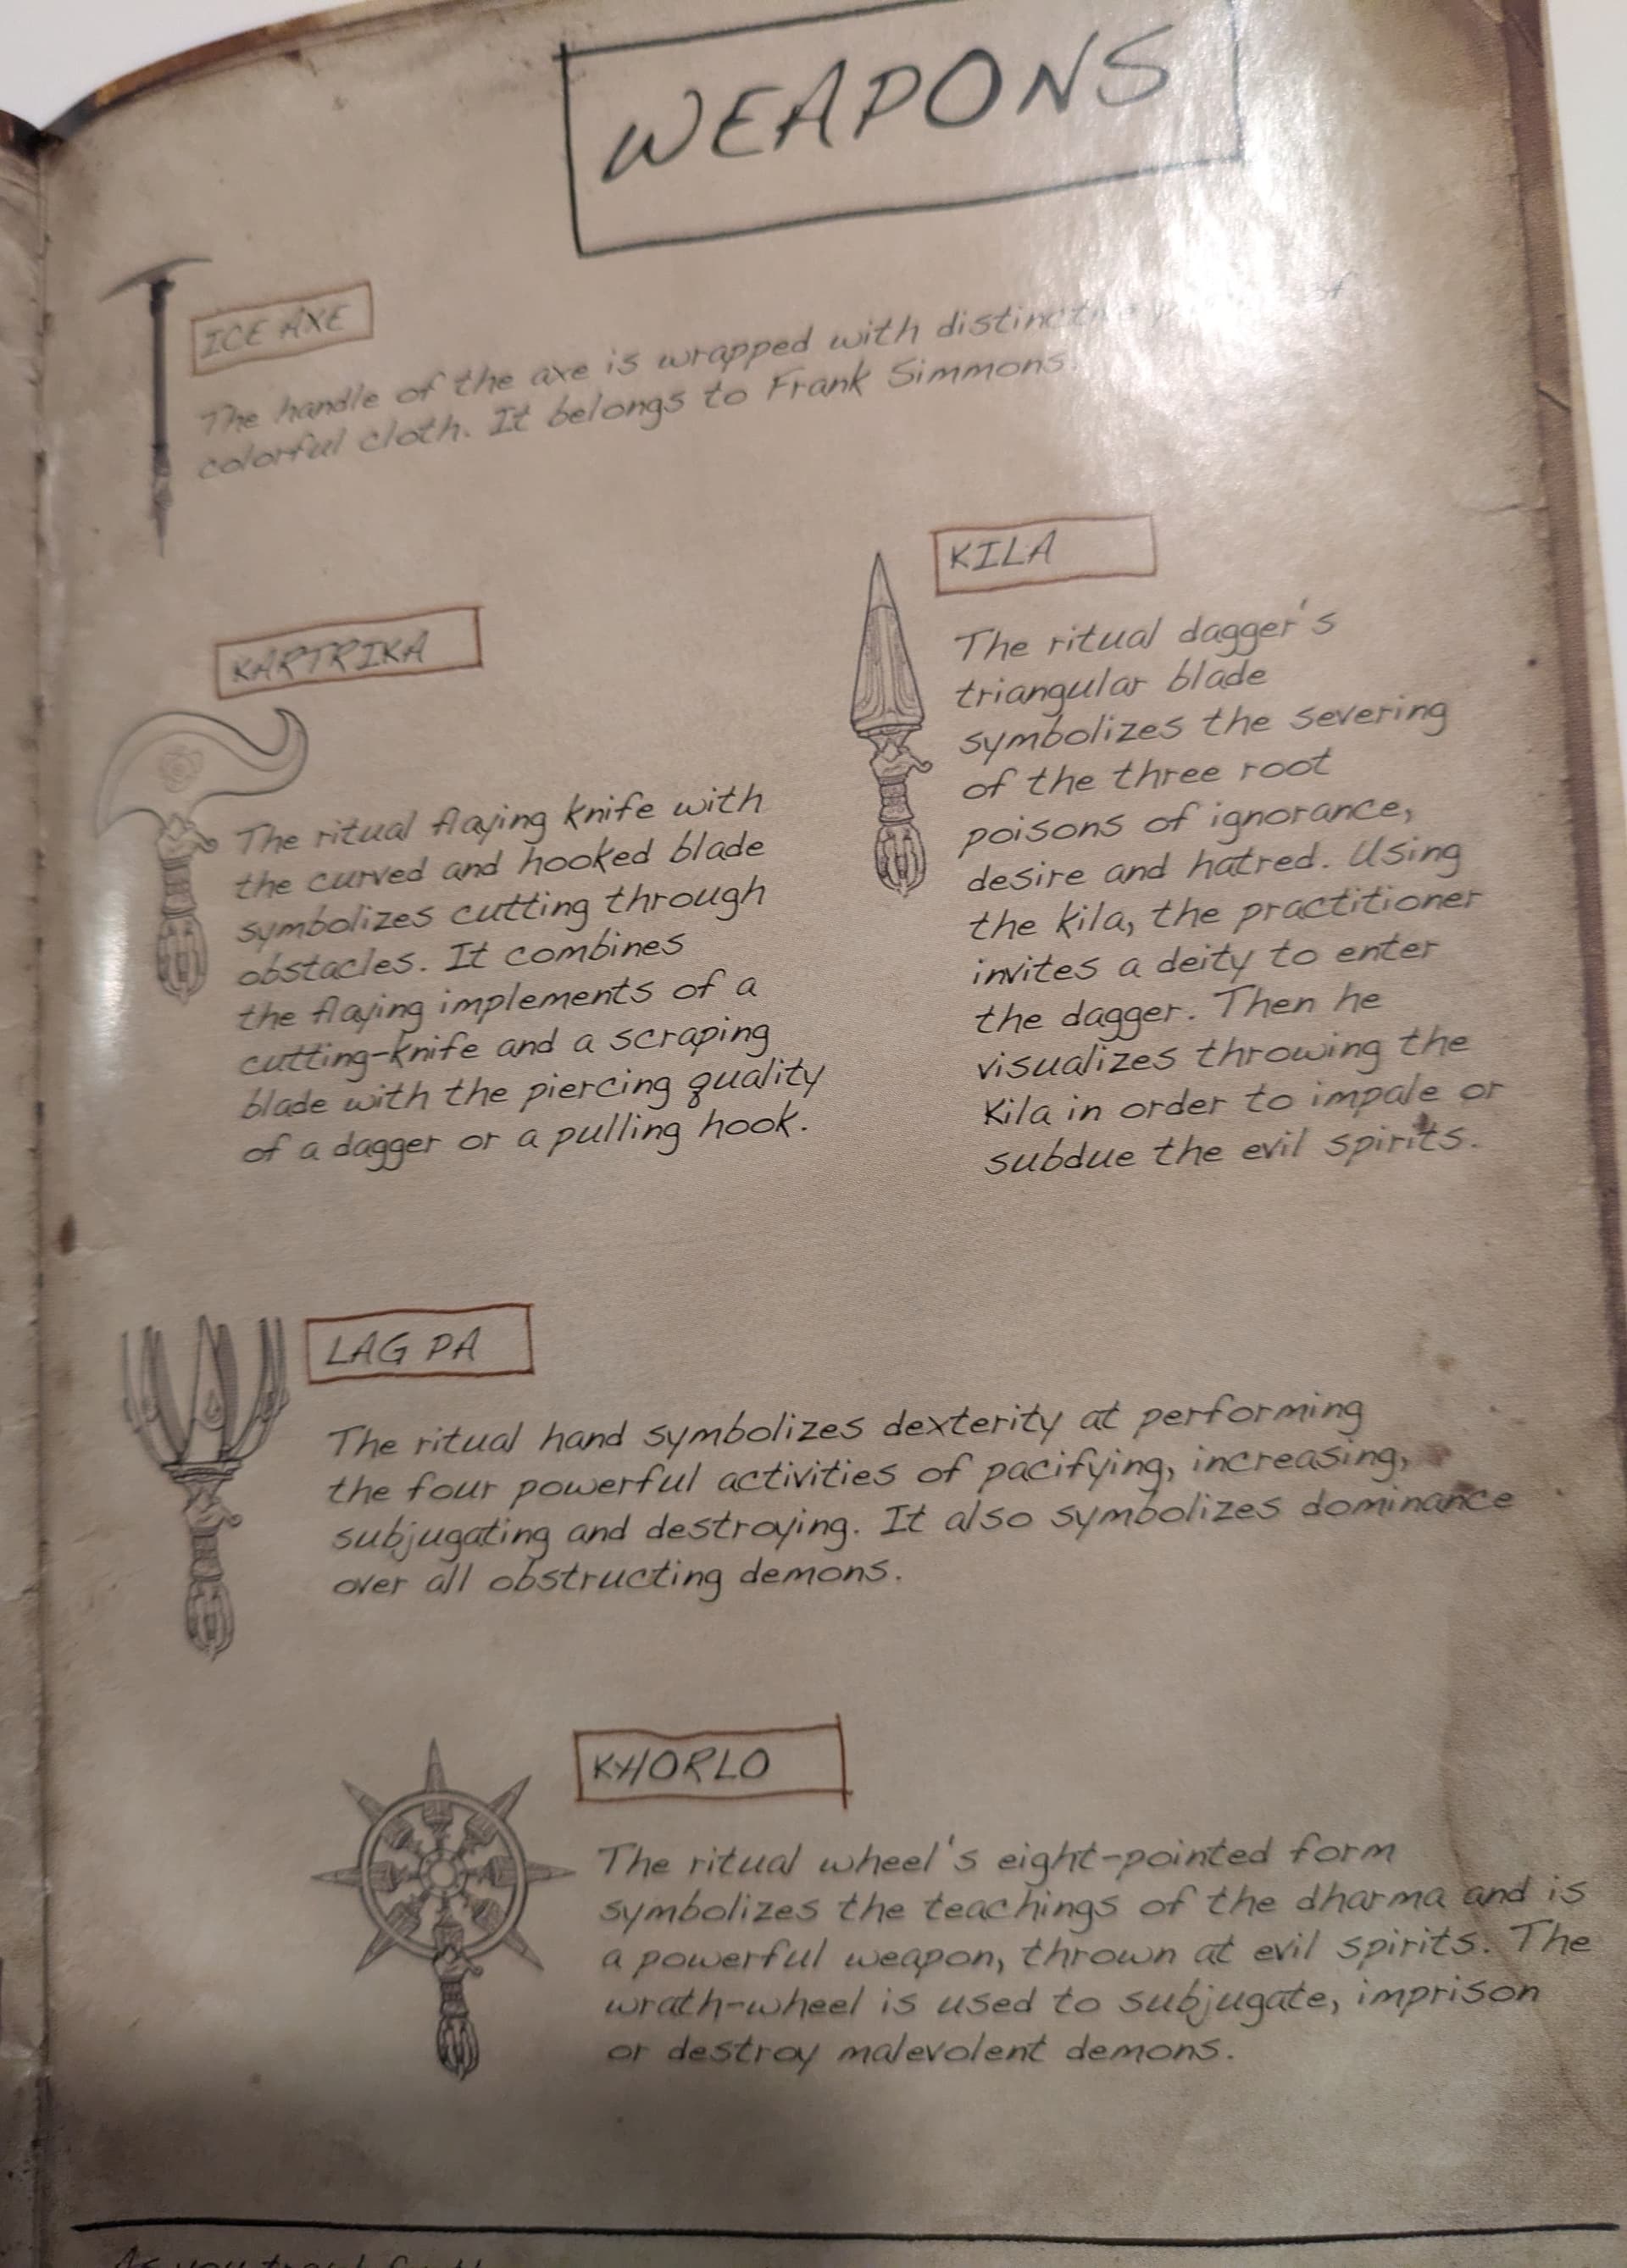 WEAPONS
ICE AXE
The handle of the axe is wrapped with
colorful cloth. It belongs to Frank Simmons.
KARTRIKA
The ritual flaying knife with
the curved and hooked blade
symbolizes cutting through
obstacles. It combines
the flaying implements of a
cutting-knife and a scraping
blade with the piercing quality
of a dagger or a pulling hook.
KILA
The ritual dagger's
triangular blade
symbolizes the severing
of the three root
poisons of ignorance,
desire and hatred. Using
the kila, the practitioner
invites a deity to enter
the dagger. Then he
visualizes throwing the
kila in order to impale or
subdue the evil spirits.
LAG PA
The ritual hand symbolizes dexterity at performing
the four powerful activities of pacifying, increasing,
subjugating and destroying. It also symbolizes dominance
over all obstructing demons.
KHORLO
The ritual wheel's eight-pointed form
symbolizes the teachings of the dharma and is
a powerful weapon, thrown at evil spirits. The
wrath-wheel is used to subjugate, imprison
or destroy malevolent demons.
As you